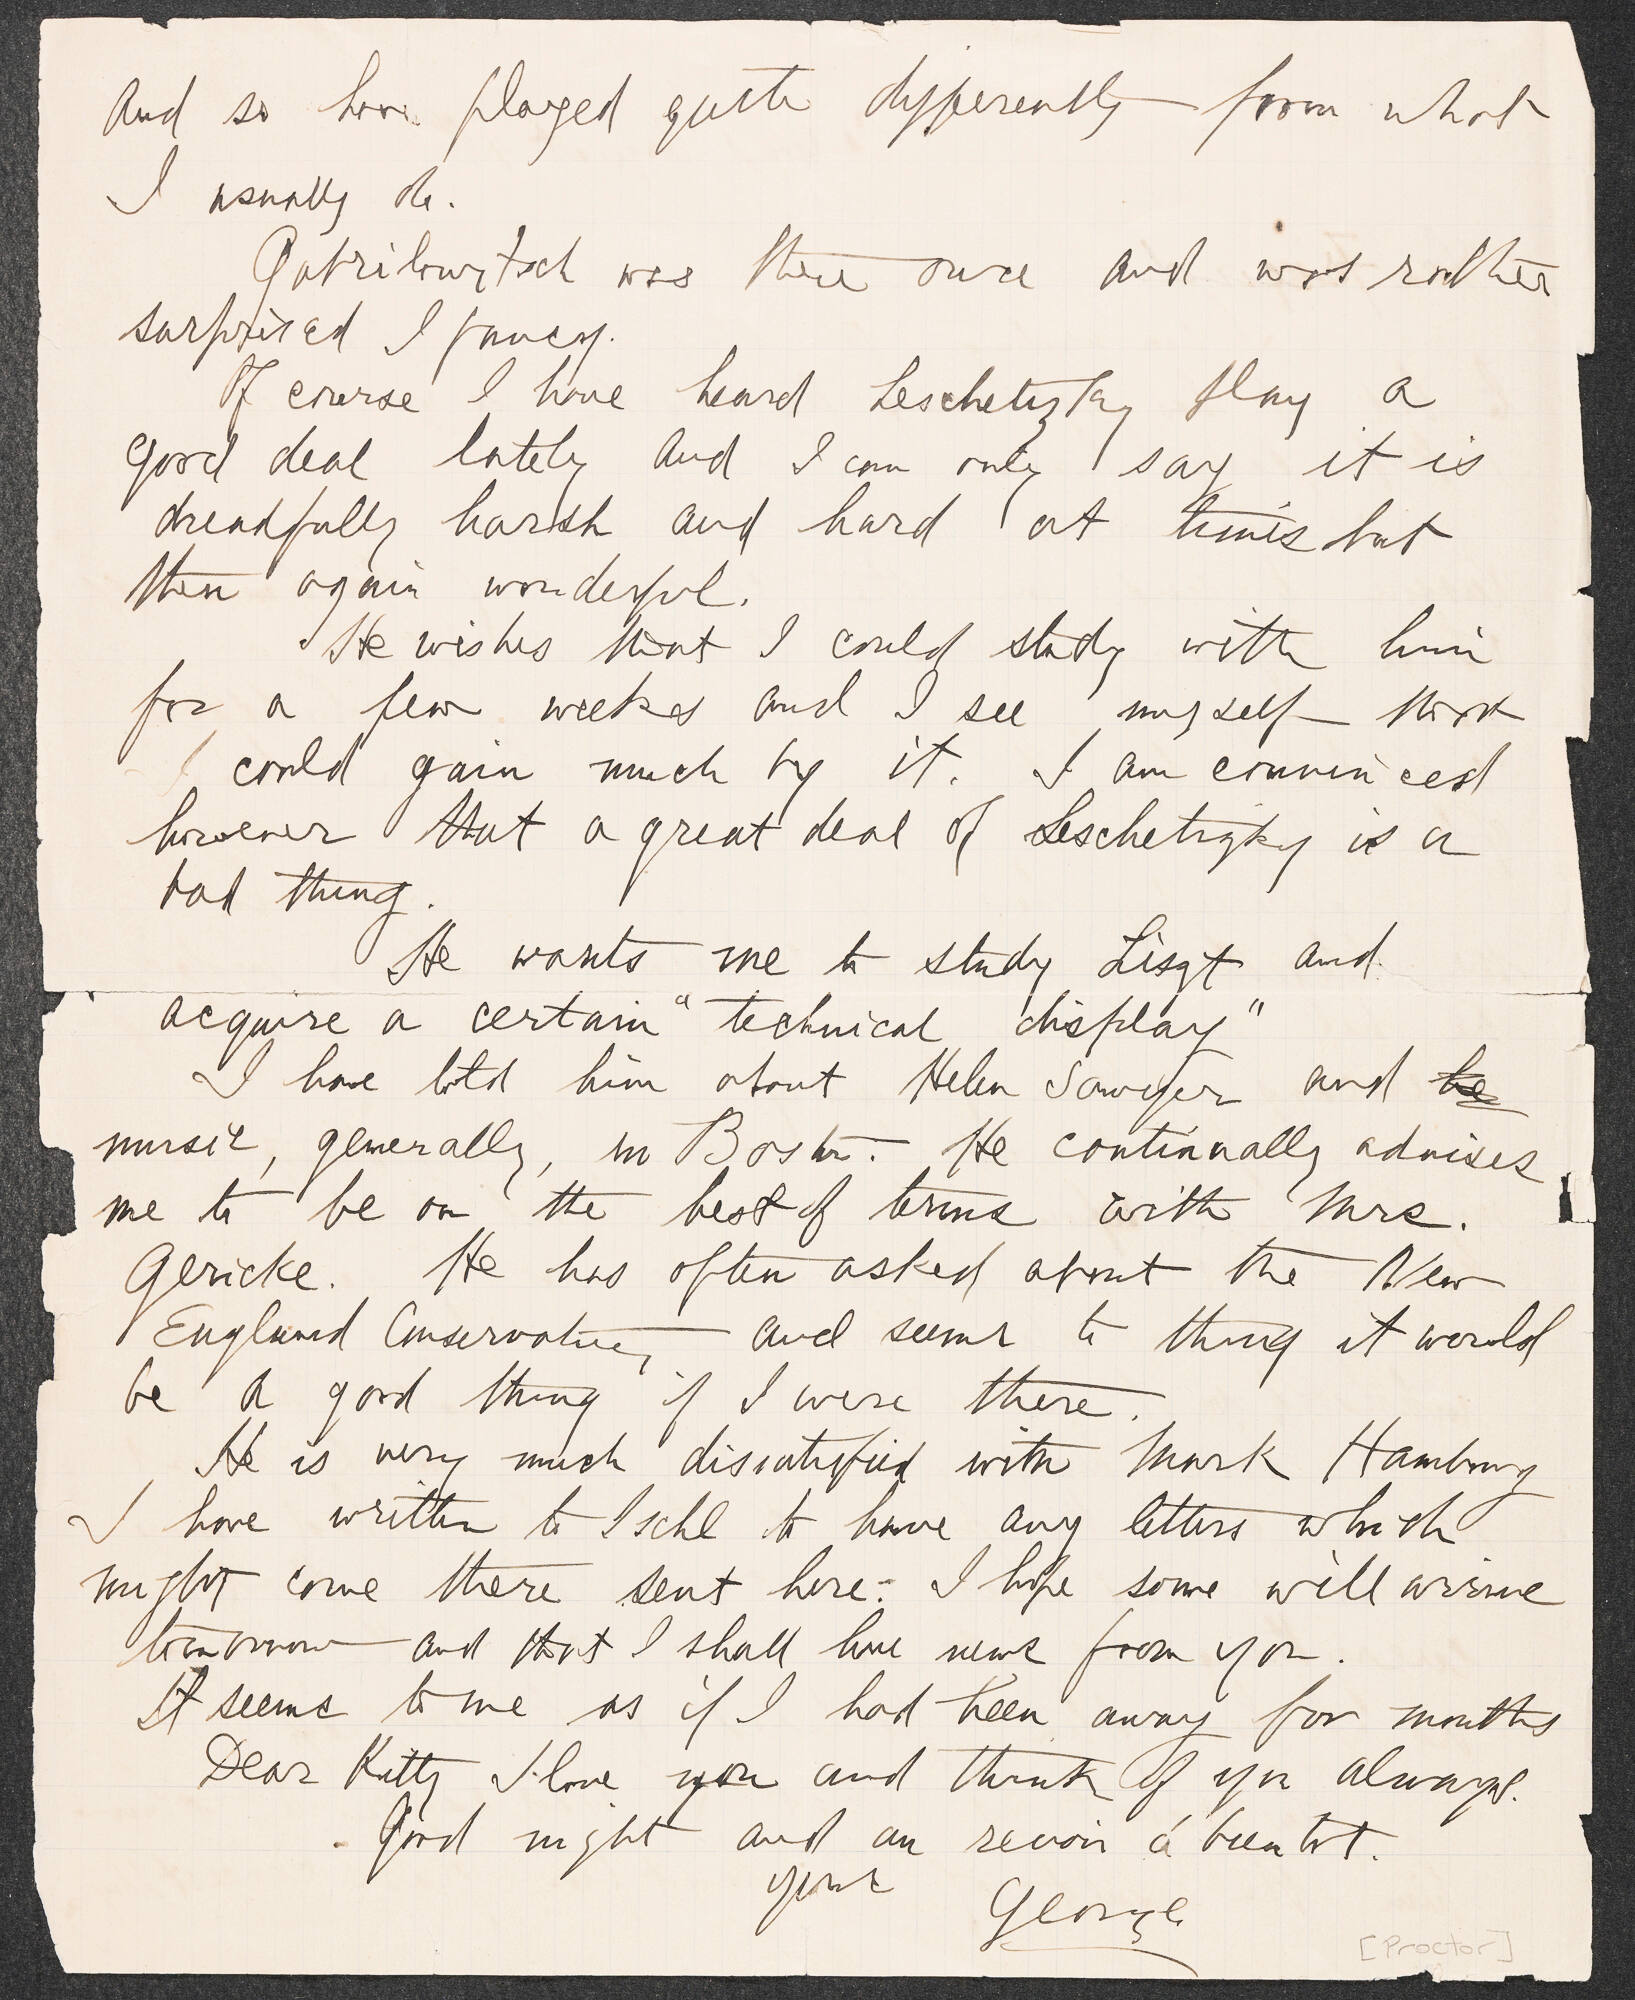 And so have played quite differently from what
I usually do.
Gabrilowitsch was there once and was rather
surprised I fancy.
Of course I have heard Leschetizky play a
good deal lately and I can only say it is
dreadfully harsh and hard at times but
then again wonderful.
He wishes that I could study with him
for a few weeks and I see myself that
I could gain much by it. I am convinced
however that a great deal of Leschetizky is a
bad thing.
He wants me to study Liszt and
acquire a certain "technical display"
I have told him about Helen Sawyer and he
music, generally, in Boston. He continually advises
me to be on the best of terms with Mrs.
Gericke. He has often asked about the New
England Conservatory and seems to thing it would
be a good thing if I were there.
He is very much disatisfied with Mark Hambourg
I have written to Ischl to have any letters which
might come there sent here. I hope some will arrive
tomorrow and that I shall have news from you.
It seems to me as if I had been away for months
Dear Kitty I love you and think of you always.
Good night and au revoir á bientot.
Yours
George
[Proctor]